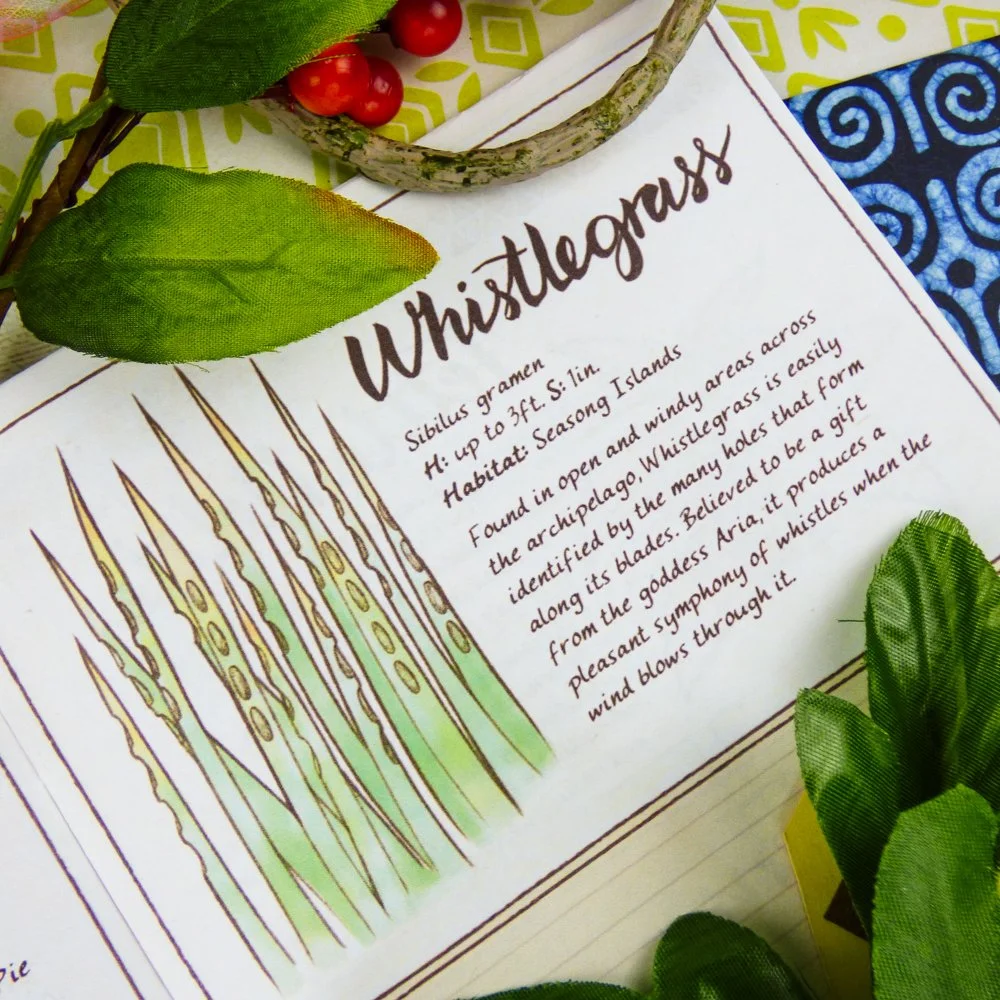 Whistlegrass
Sibilus gramen
H: up to 3ft. S: 1in.
Habitat: Seasong Islands
Found in open and windy areas across
the archipelago, Whistlegrass is easily
identified by the many holes that form
along its blades. Believed to be a gift
from the goddess Aria, it produces a
pleasant symphony of whistles when the
wind blows through it.
Pie